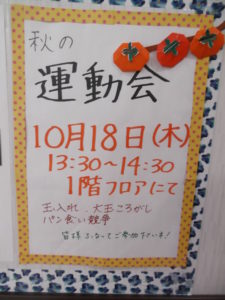 秋の
運動会
10月18日(木)
13:30~14:30
1階フロアにて
玉入れ、大玉ころがし
パン食い競争
皆様ふるってご参加下さい!